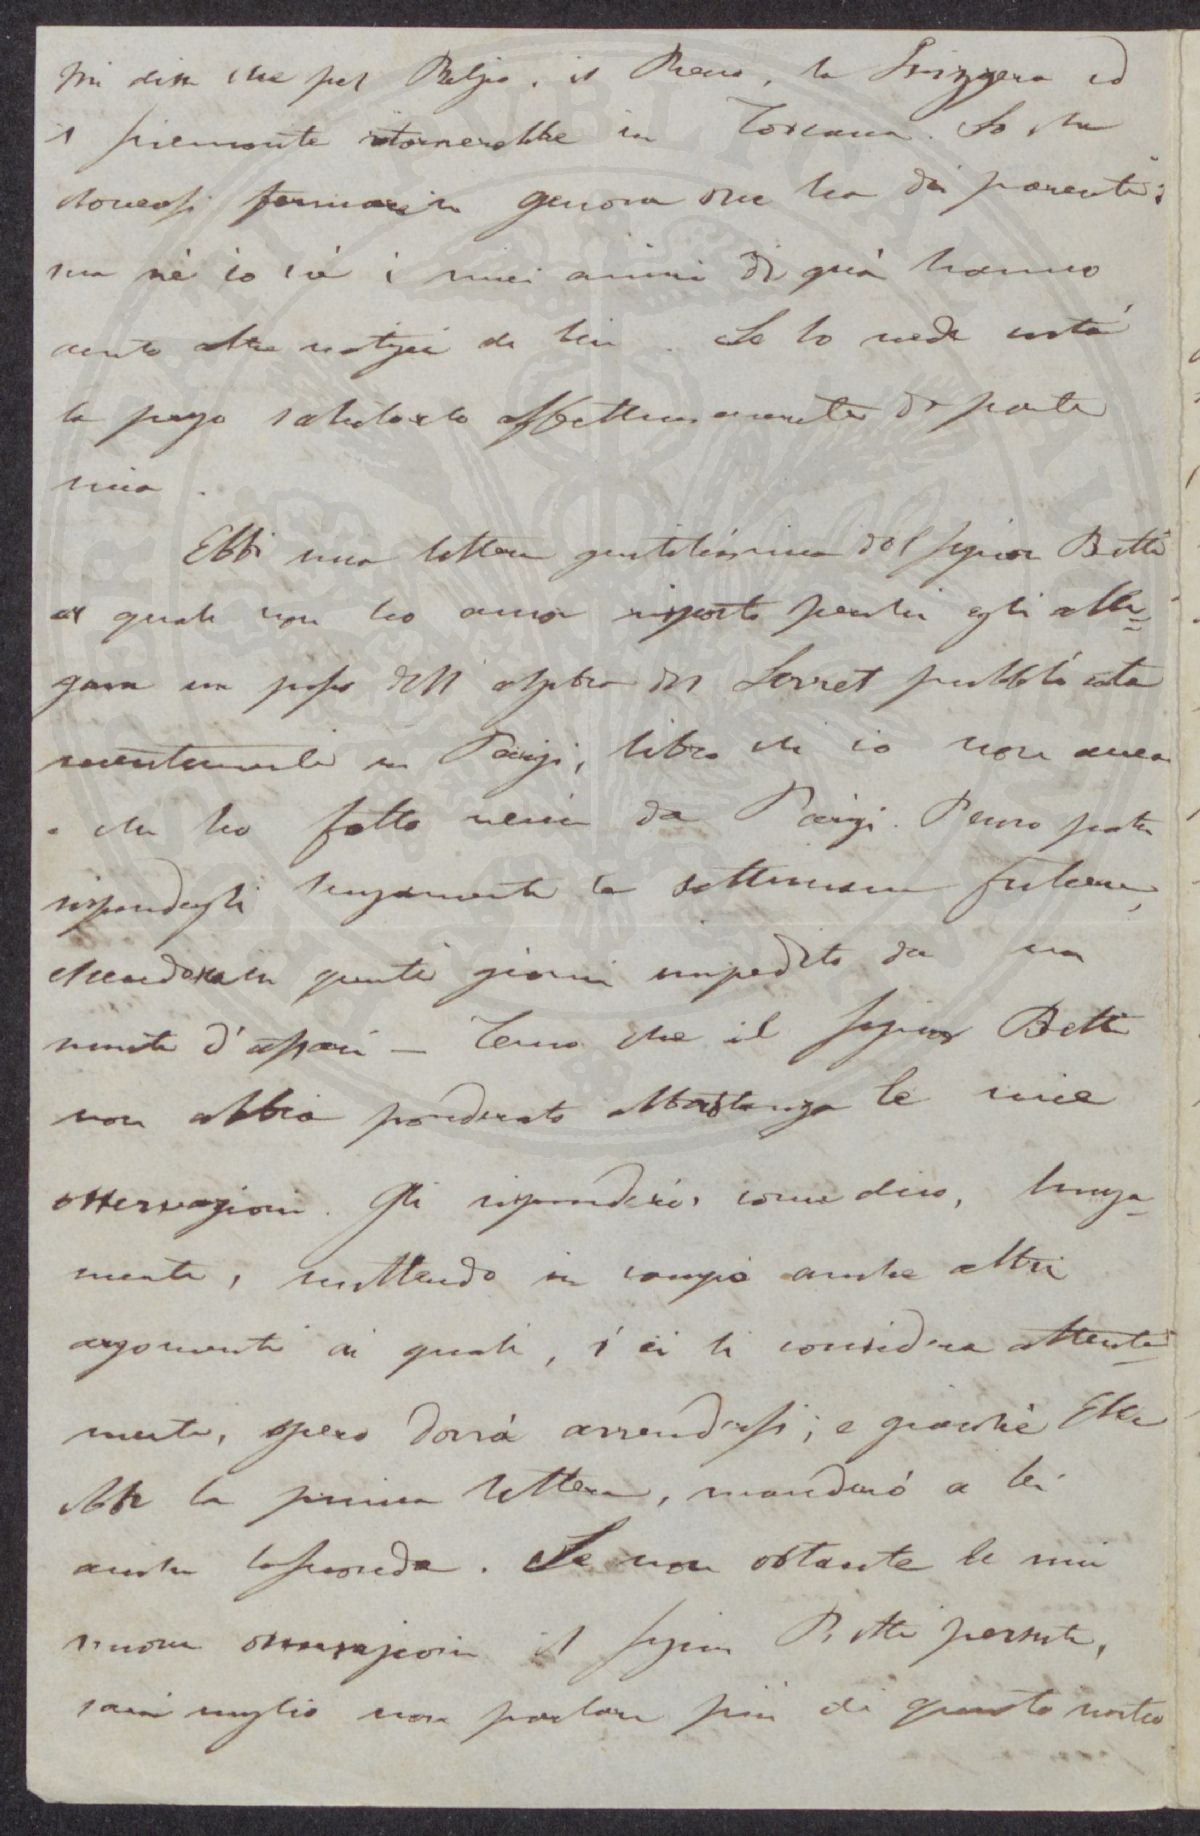 Mi disse che pel Belgio, il Reno, la Svizzera ed
il piemonte ritornerebbe in Toscana. So che
dovea fermarsi in genova ove ha dei parenti;
ma nè io nè i miei amici di quà hanno
avuto altre notizie di lui. Se lo vede costà
la prego salutarlo affettuosamente da parte
mia.
Ebbi una lettera gentilissima del signor Betti
al quale non ho ancor risposto perchè egli alle=
gava un passo dell' algebra del Serret pubblicata
recentemente in Parigi, libro che io non avea
e che ho fatto venire da Parigi. Penso poter
rispondergli lungamente la settimana futura,
essendo in questi giorni impedito da un
monte d'affari — Temo che il signor Betti
non abbia ponderato abbastanza le mie
osservazioni. Gli risponderò, come dico, lunga=
mente, mettendo in campo anche altri
argomenti ai quali, s'ei li considera attenta=
mente, spero dovrà arrendersi; e giacchè Ella
ebbe la prima lettera, manderò a lei
anche la seconda. Se non ostante le mie
nuove osservazioni il signor Betti persiste,
sarà meglio non parlare più di questo nostro